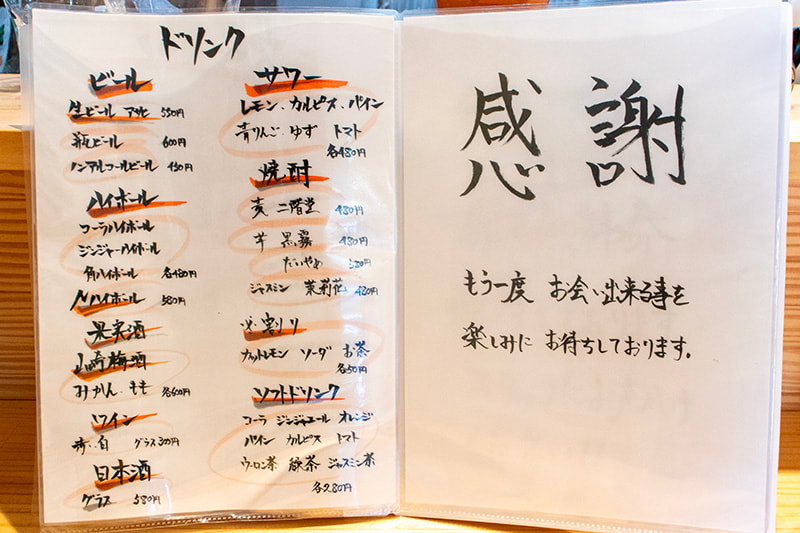 ドリンク
ビール
生ビール アサヒ 550円
瓶ビール 600円
ノンアルコールビール 450円
ハイボール
コーラハイボール
ジンジャーハイボール
角ハイボール 各480円
ハイボール 580円
果実酒
山崎梅酒
みかん、もも 各600円
ワイン
赤、白 グラス300円
日本酒
グラス 580円
サワー
レモン、カルピス、パイン
青りんご ゆず トマト
各480円
焼酎
麦 二階堂 480円
芋 黒霧 480円
だいやめ 580円
ジャスミン 茉莉花 480円
割り
カットレモン ソーダ お茶
各50円
ソフトドリンク
コーラ ジンジャエール オレンジ
パイン カルピス トマト
ウーロン茶 緑茶 ジャスミン茶
各280円
感謝
もう一度 お会い出来る事を
楽しみに お待ちしております。